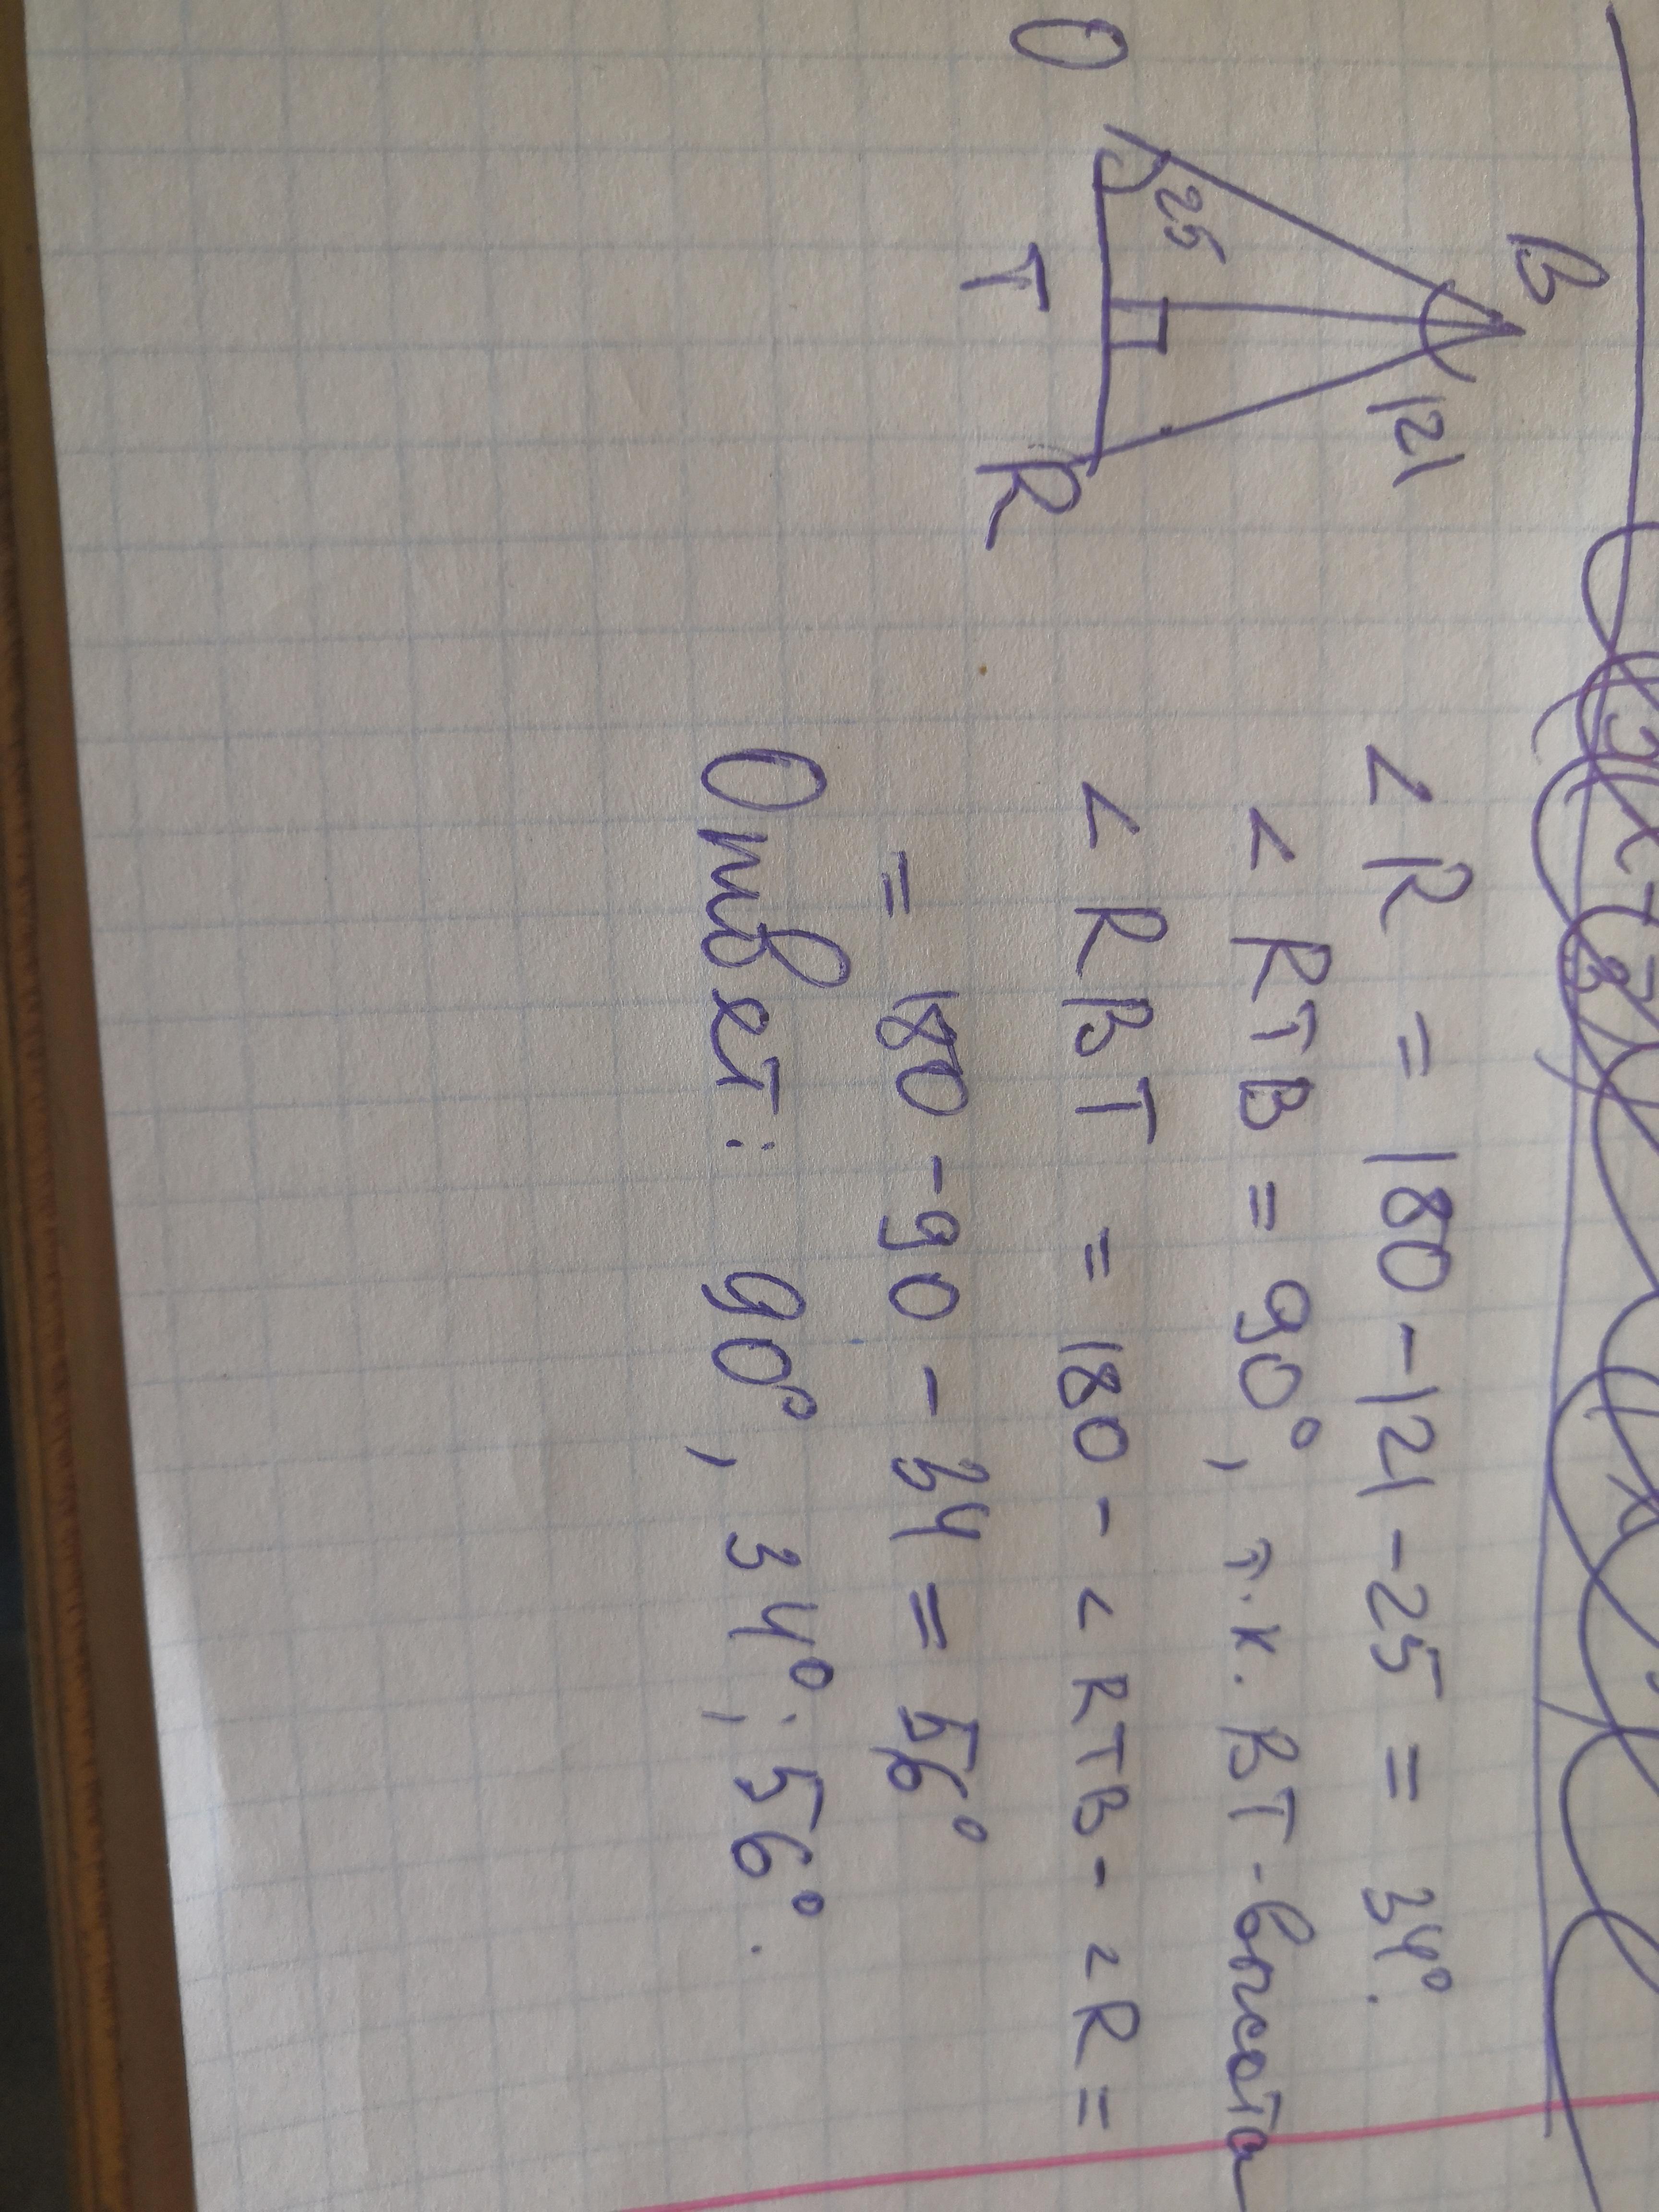 B
121
25
O
T
R
∠R = 180 - 121 - 25 = 34°.
∠RTB = 90°, т.к. BT - высота
∠RBT = 180 - ∠RTB - ∠R =
= 180 - 90 - 34 = 56°
Ответ: 90°, 34°; 56°.